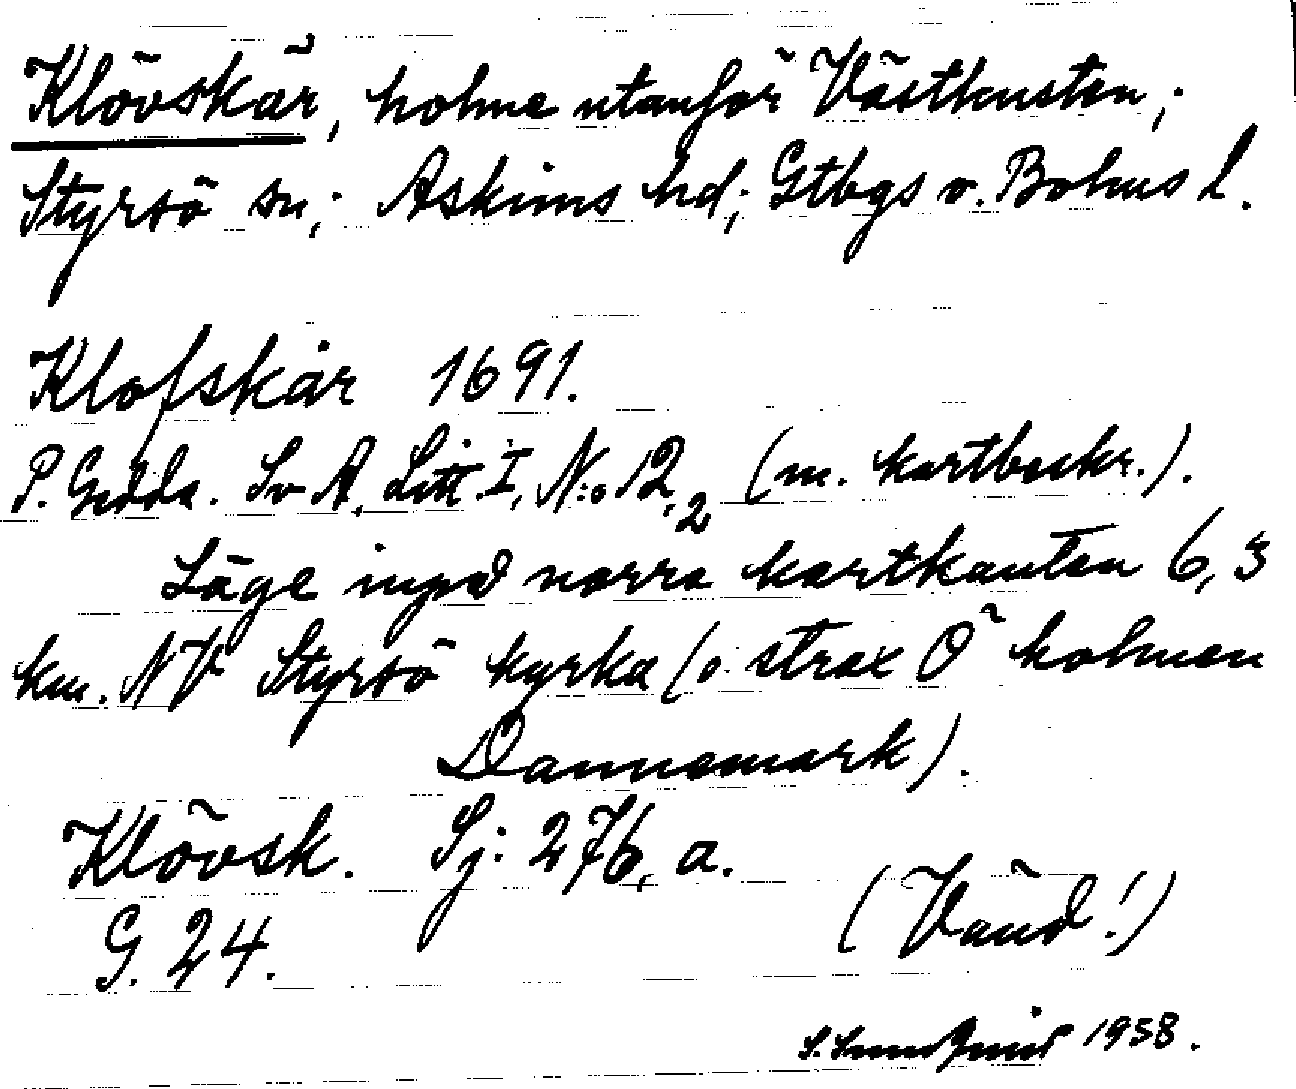 Klövskär, holme utanför Västkusten;
Styrsö sn; Askims hd; Gtbgs o. Bohus l.
Klofskår 1691.
P. Gedda. Sv A, Litt. I, N:o 12,2 (m. kartbeskr.).
Läge invid norra kartkanten 6,3
km. NV Styrsö kyrka (o. strax Ö holmen
Dannemark).
Klövsk. Sj: 276, a.
G. 24.
(Vänd!)
S. Sundquist 1938.